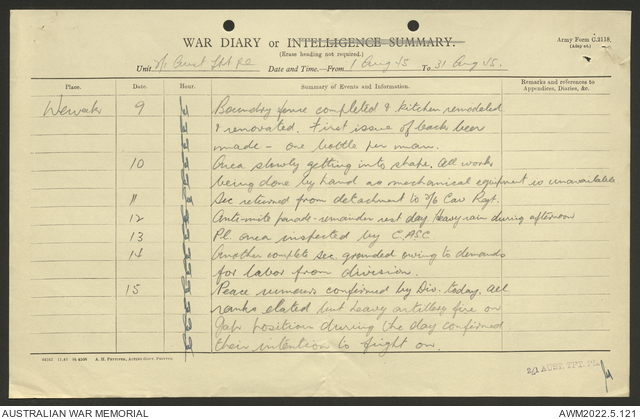 WAR DIARY or INTELLIGENCE SUMMARY.
(Erase heading not required.)
Army Form C.2118.
Unit 2/1 Aust Tpt Pl Date and Time—From 1 Aug 45 To 31 Aug 45.
Place. Date. Hour. Summary of Events and Information. Remarks and references to Appendices, Diaries, &c.
Wewak 9 Boundry fence completed & kitchen remodeled
& renovated. First issue of beer been
made - one bottle per man.
10 Area slowly getting into shape. All work
being done by hand as mechanical equipment is unavailable
11 Sec returned from detachment to 2/6 Cav Regt.
12 Anti-mite parade - remainder rest day. Heavy rain during afternoon
13 Pl. area inspected by C.ASC
14 Another complete sec grounded owing to demands
for labor from division.
15 Peace rumours confirmed by Div. today. All
ranks elated but heavy artillery fire on
Jap position during the day confirmed
their intention to fight on.
A. H. Pettifer, Acting Govt. Printer.
2/1 AUST. TPT. PL.
AUSTRALIAN WAR MEMORIAL
AWM2022.5.121